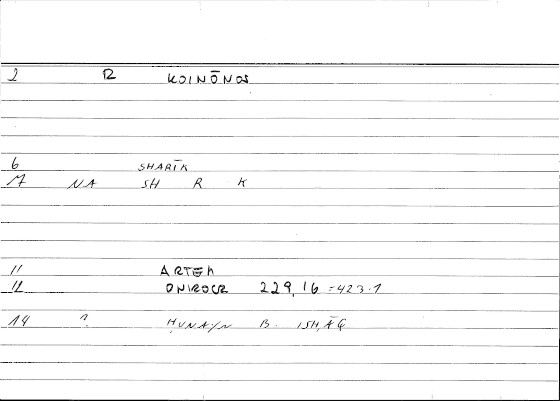 2 R KOINŌNOS
6 SHARĪK
7 NA SH R K
11 ARTEM
12 ONIROCR 229,16 = 423.1
14 ? ḤUNAYN B. ISḤĀQ